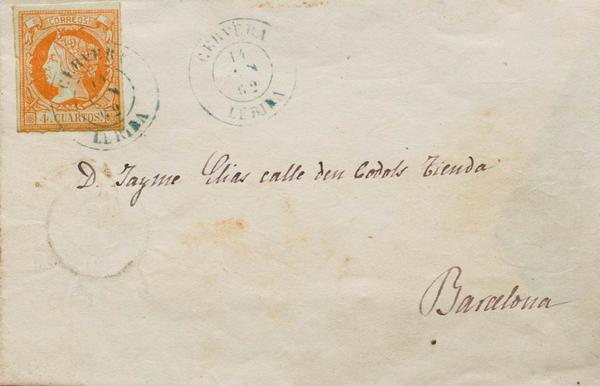 CORREOS
4 CUARTOS
CERVERA
LERIDA
CERVERA
14
62
LERIDA
D. Jayme Elias calle den Codols Tienda
Barcelona